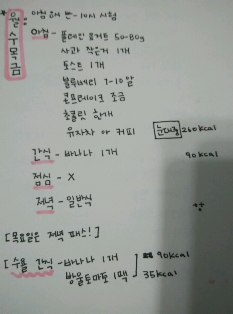 월
수
목
금
아침
아침 - 플레인 요거트 50-80g
사과 작은거 1개
토스트 1개
블루베리 7-10알
콘프레이크 조금
초콜릿 한개
유자차 or 커피 260kcal
간식 - 바나나 1개 90kcal
점심 - X
저녁 - 일반식
[목요일은 저녁 패스!]
[수욜 간식 - 바나나 1개 90kcal
방울토마토 1팩 35kcal